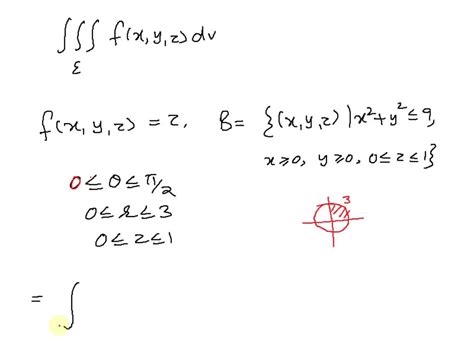 ∭ f(x,y,z) dv
ε
f(x,y,z) = z, B = {(x,y,z) | x² + y² ≤ 9,
x ≥ 0, y ≥ 0, 0 ≤ z ≤ 1}
0 ≤ θ ≤ π/2
0 ≤ r ≤ 3
0 ≤ z ≤ 1
3
= ∫